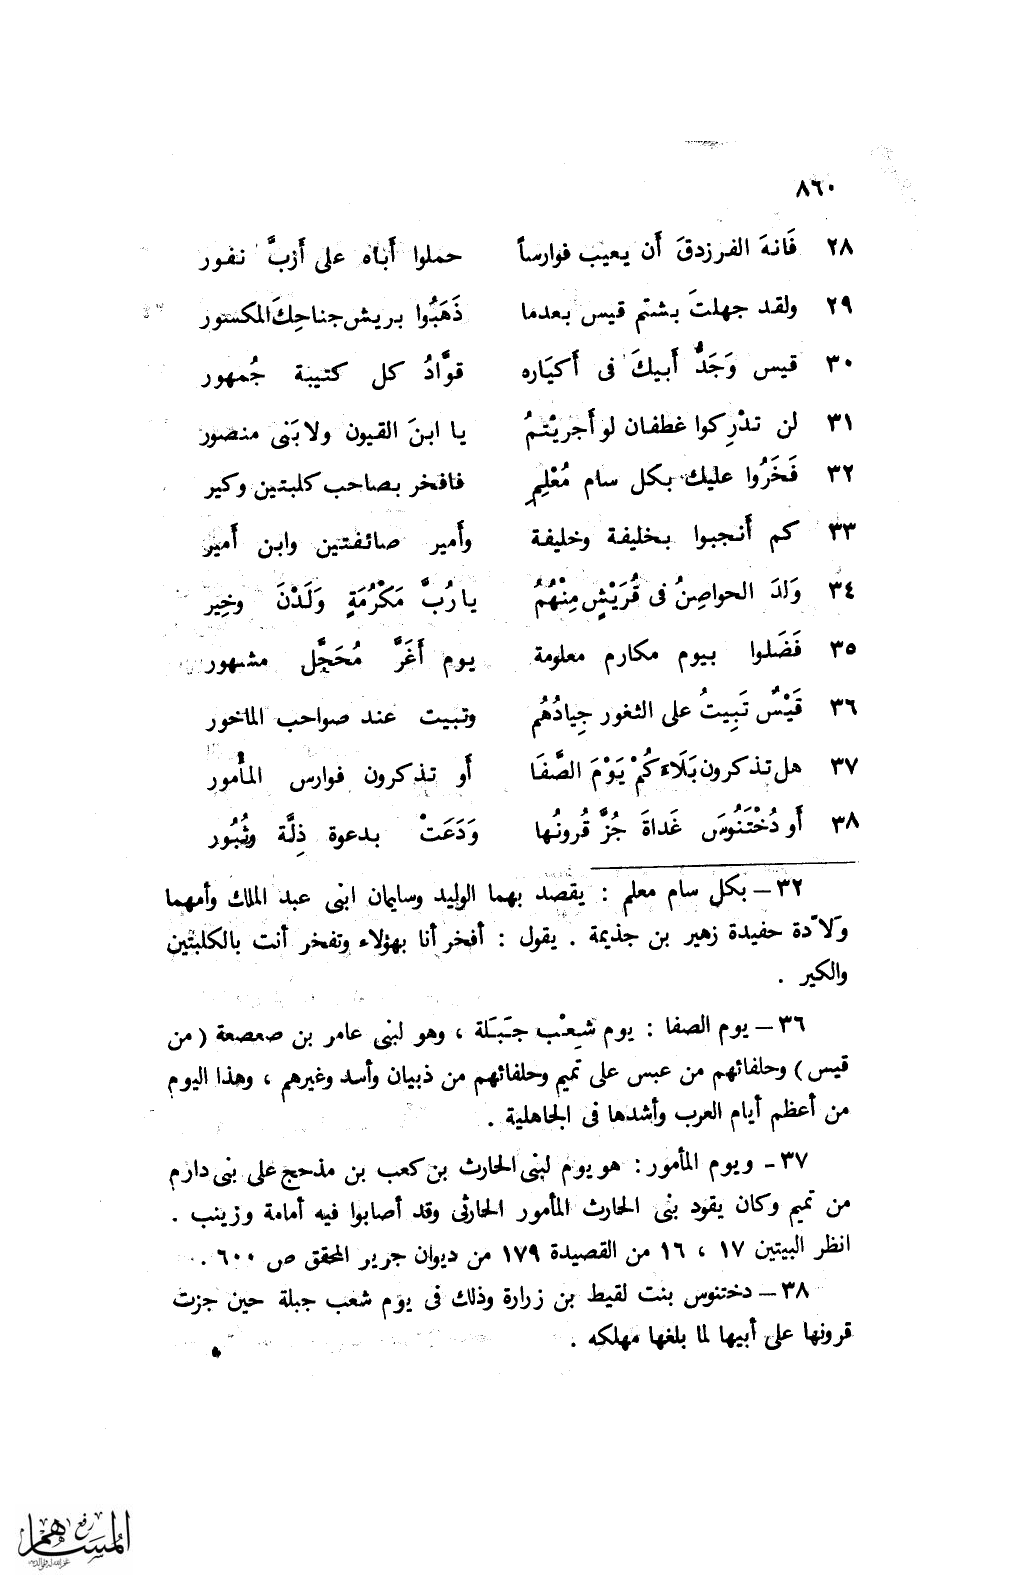 ٨٦٠
٢٨ فَانهَ الفرزدقَ أَن يعيب فوارساً حملوا أَباه على أَزبَّ نفور
٢٩ ولقد جهلتَ بشتم قيس بعدما ذَهَبُوا بريش جناحِكَ المكسور
٣٠ قيس وَجَدُّ أَبيكَ فى أَكيَاره قوَّادُ كل كتيبة جُمهور
٣١ لن تدْرِكوا غطفان لو أَجريْتمُ يا ابنَ القيون ولا بَنى منصور
٣٢ فَخَرُوا عليك بكل سام مُعْلِمٍ فافخر بصاحب كلبتين وكير
٣٣ كم أَنجبوا بخليفة وخليفة وأَمير صائفتين وابن أَمير
٣٤ وَلدَ الحواصِنُ فى قُرَيْشٍ مِنْهُمُ يا رُبَّ مَكْرُمَةٍ وَلَدْنَ وخِير
٣٥ فَضَلوا بيوم مكارم معلومة يوم أَغَرَّ مُحَجَّل مشهور
٣٦ قَيْسٌ تَبِيتُ على الثغور جِيادُهُم وتبيت عند صواحب الماخور
٣٧ هل تذكرون بَلَاءَكُمْ يَوْمَ الصَّفَا أَو تذكرون فوارس المأمور
٣٨ أَو دُخْتَنُوسَ غَداةَ جُزَّ قُرونُها وَدَعَتْ بدعوة ذِلَّة وثُبُور
٣٢ – بكل سام معلم : يقصد بهما الوليد وسليمان ابنى عبد الملك وأمهما
وَلاّدة حفيدة زهير بن جذيمة . يقول : أفخر أنا بهؤلاء وتفخر أنت بالكلبتين
والكير .
٣٦ – يوم الصفا : يوم شِعْب جَبَلة ، وهو لبنى عامر بن صعصعة ( من
قيس ) وحلفائهم من عبس على تميم وحلفائهم من ذبيان وأسد وغيرهم ، وهذا اليوم
من أعظم أيام العرب وأشدها فى الجاهلية .
٣٧ - ويوم المأمور : هو يوم لبنى الحارث بن كعب بن مذحج على بنى دارم
من تميم وكان يقود بنى الحارث المأمور الحارثى وقد أصابوا فيه أمامة وزينب .
انظر البيتين ١٧ ، ١٦ من القصيدة ١٧٩ من ديوان جرير المحقق ص ٦٠٠ .
٣٨ – دختنوس بنت لقيط بن زرارة وذلك فى يوم شعب جبلة حين جزت
قرونها على أبيها لما بلغها مهلكه .
رفع
المساهم